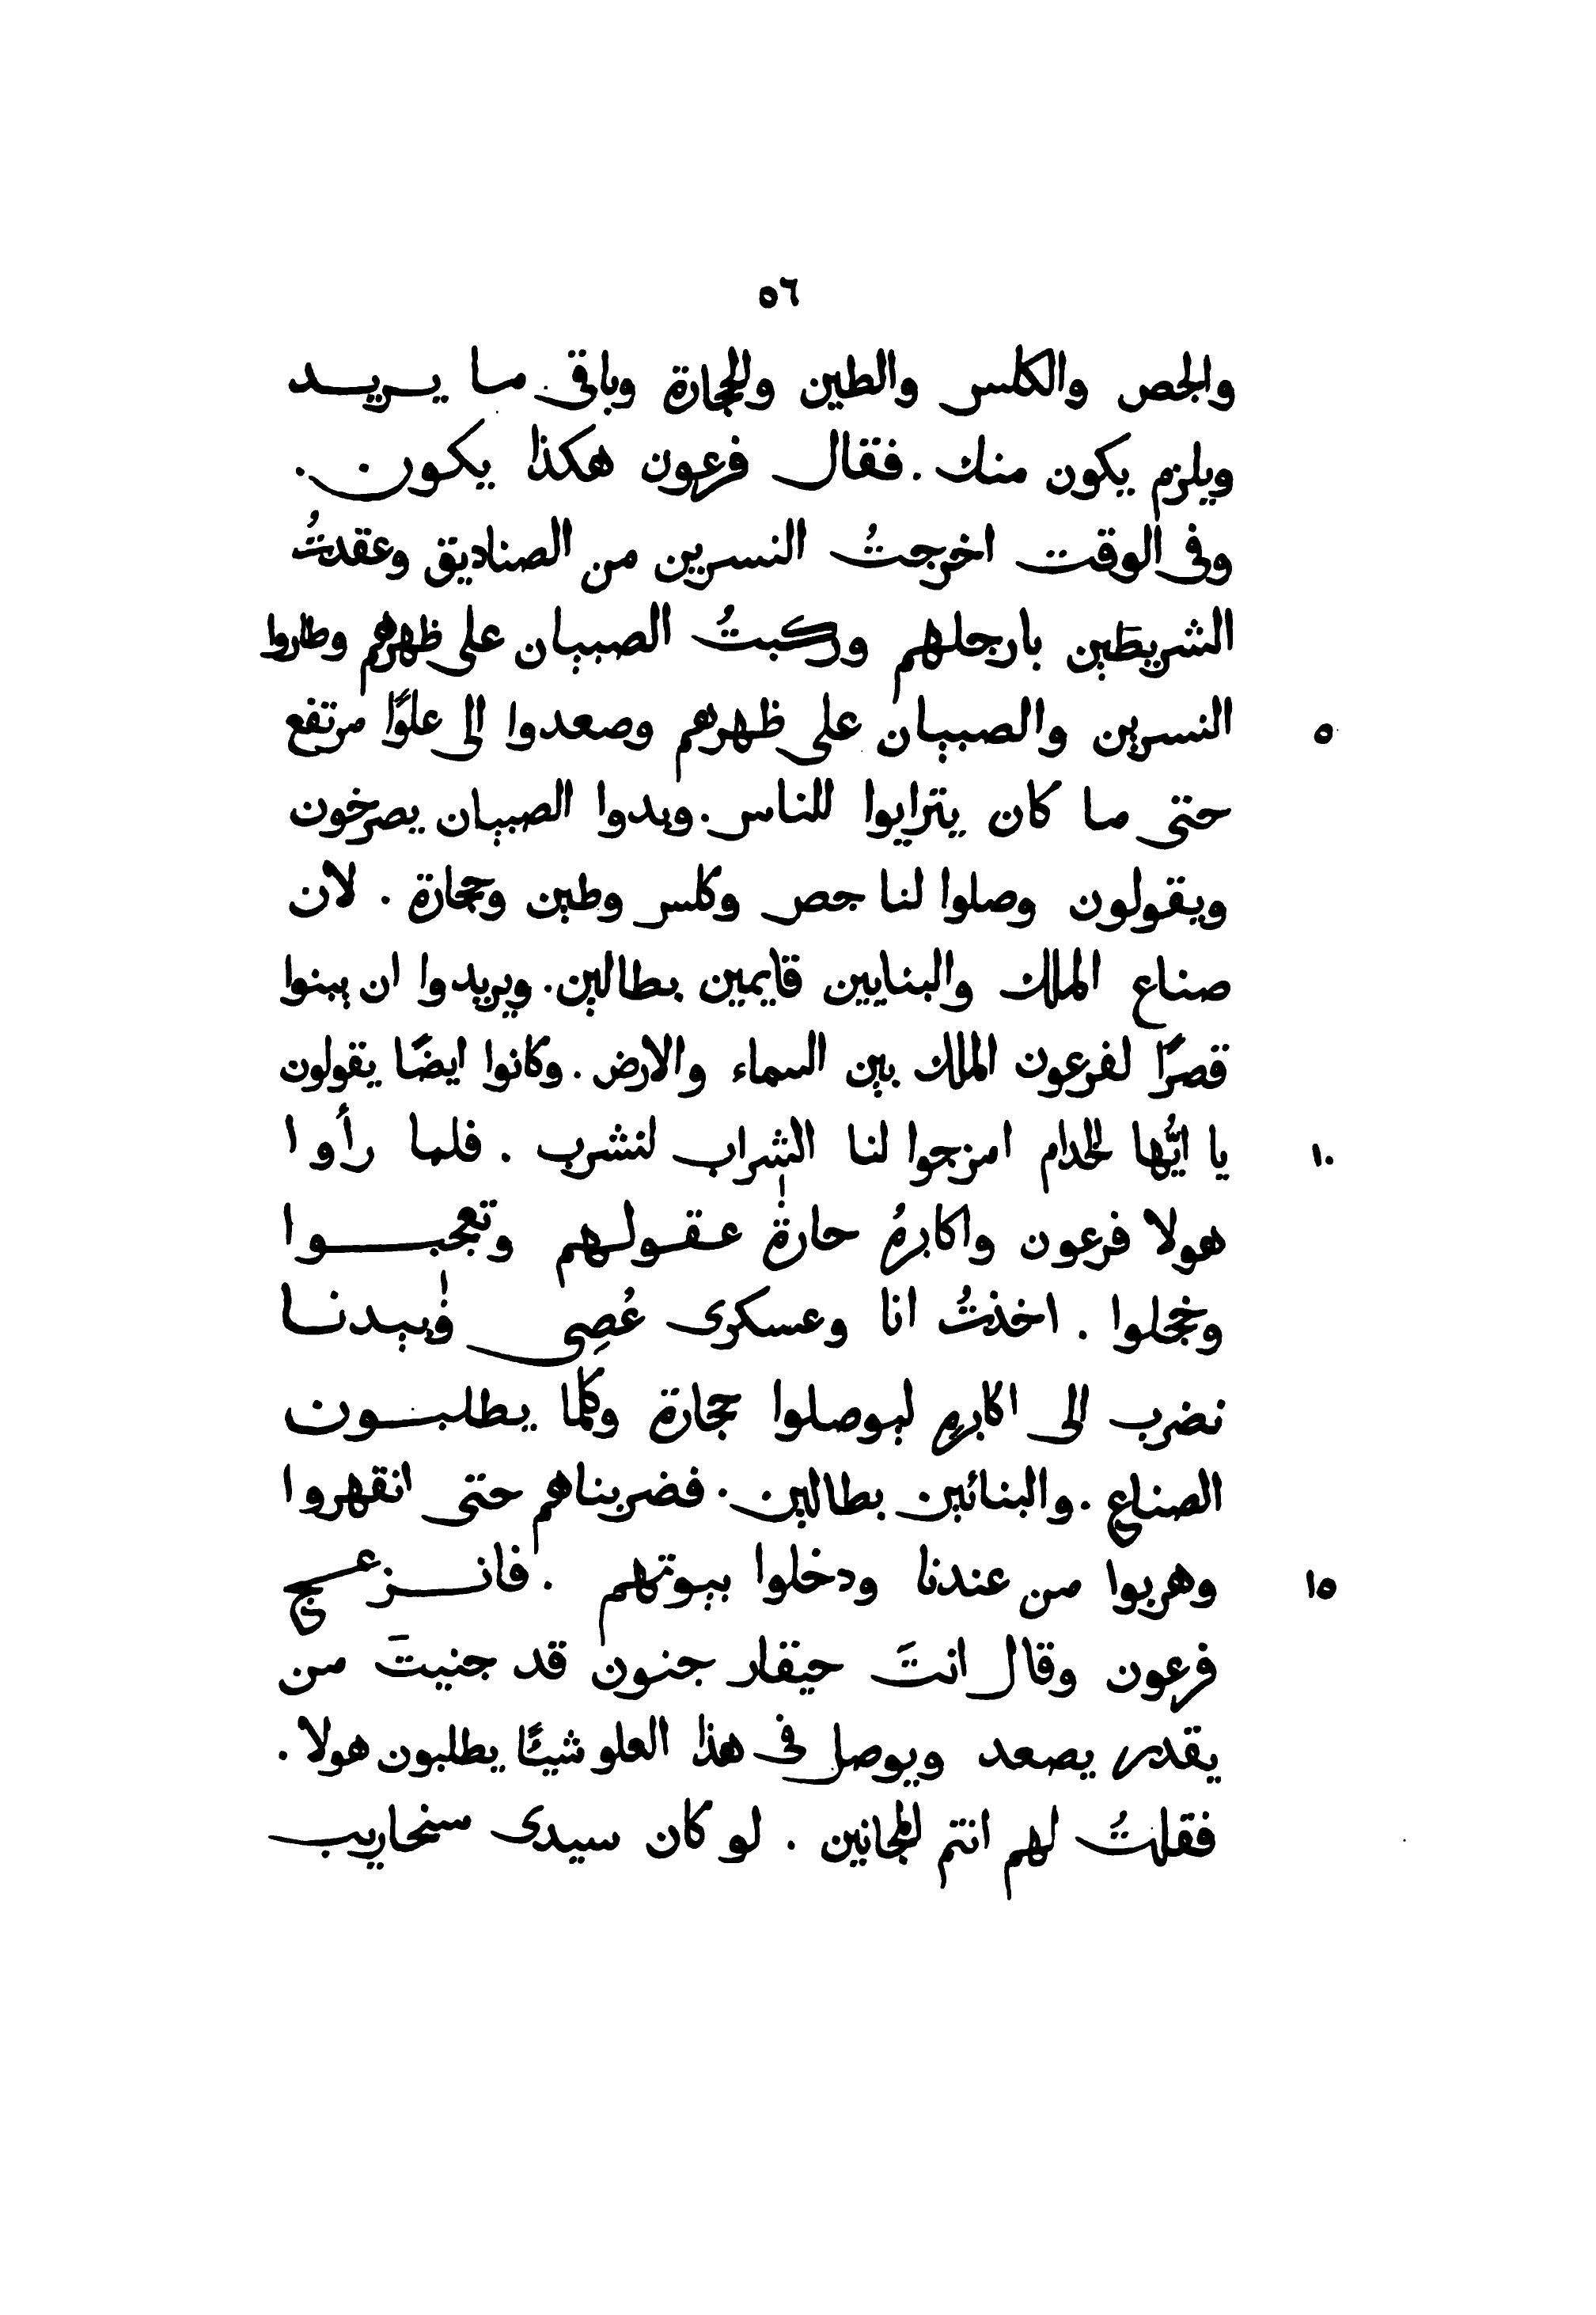 ٥٦
والجص والكلس والطين والحجارة وباقى ما يريد
ويلزم يكون منك . فقال فرعون هكذا يكون .
وفى الوقت اخرجتُ النسرين من الصناديق وعقدتُ
الشريطَين بارجلهم وركبتُ الصبيان على ظهرهم وطاروا
النسرين والصبيان على ظهرهم وصعدوا الى علوًا مرتفع ٥
حتى ما كان يترايوا للناس . وبدوا الصبيان يصرخون
ويقولون وصلوا لنا جص وكلس وطين وحجارة . لان
صناع الملك والبنايين قايمين بطالين . ويريدوا ان يبنوا
قصرًا لفرعون الملك بين السماء والارض . وكانوا ايضًا يقولون
يا ايُّها الخدام امزجوا لنا الشراب لنشرب . فلما رأوا ١٠
هولا فرعون واكابرهُ حارةٰ عقولهم وتعجبوا
وخجلوا . اخذتُ انا وعسكرى عُصِى وٰبيدنا
نضرب الى اكابرهِ ليوصلوا حجارة وكلّما يطلبون
الصناع . والبنائين بطالين . فضربناهم حتى انقهروا
وهربوا من عندنا ودخلوا بيوتهم . فانزعج ١٥
فرعون وقال انتَ حيقار جنون قد جنيتَ من
يقدر يصعد ويوصل فى هذا العلو شيئًا يطلبون هولا .
فقلتُ لهم انتم المجانين . لو كان سيدى سنحاريب